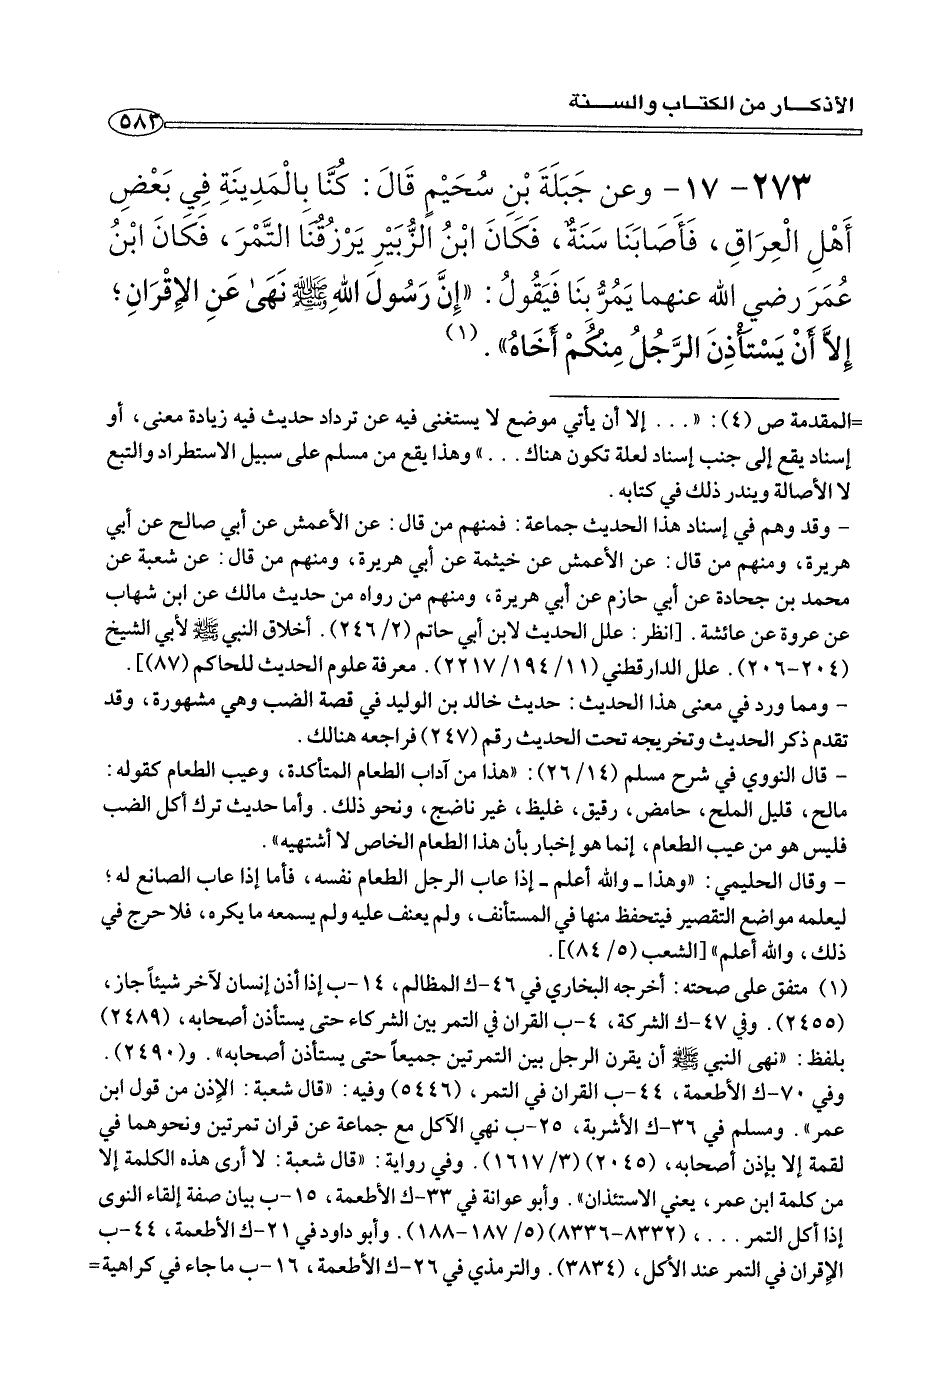 الأذكــار من الكتـاب والســنة
٥٨٣
٢٧٣- ١٧- وعن جَبَلَةَ بْنِ سُحَيْمٍ قَالَ: كُنَّا بِالْمَدِينَةِ فِي بَعْضِ
أَهْلِ الْعِرَاقِ، فَأَصَابَنَا سَنَةٌ، فَكَانَ ابْنُ الزُّبَيْرِ يَرْزُقُنَا التَّمْرَ، فَكَانَ ابْنُ
عُمَرَ رضي الله عنهما يَمُرُّ بِنَا فَيَقُولُ: «إِنَّ رَسُولَ اللهِ ﷺ نَهَىٰ عَنِ الإِقْرَانِ؛
إِلاَّ أَنْ يَسْتَأْذِنَ الرَّجُلُ مِنْكُمْ أَخَاهُ». (١)
=المقدمة ص (٤): «... إلا أن يأتي موضع لا يستغنى فيه عن ترداد حديث فيه زيادة معنى، أو
إسناد يقع إلى جنب إسناد لعلة تكون هناك...» وهذا يقع من مسلم على سبيل الاستطراد والتبع
لا الأصالة ويندر ذلك في كتابه.
- وقد وهم في إسناد هذا الحديث جماعة: فمنهم من قال: عن الأعمش عن أبي صالح عن أبي
هريرة، ومنهم من قال: عن الأعمش عن خيثمة عن أبي هريرة، ومنهم من قال: عن شعبة عن
محمد بن جحادة عن أبي حازم عن أبي هريرة، ومنهم من رواه من حديث مالك عن ابن شهاب
عن عروة عن عائشة. [انظر: علل الحديث لابن أبي حاتم (٢/ ٢٤٦). أخلاق النبي ﷺ لأبي الشيخ
(٢٠٤-٢٠٦). علل الدارقطني (١١/ ١٩٤/ ٢٢١٧). معرفة علوم الحديث للحاكم (٨٧)].
- ومما ورد في معنى هذا الحديث: حديث خالد بن الوليد في قصة الضب وهي مشهورة، وقد
تقدم ذكر الحديث وتخريجه تحت الحديث رقم (٢٤٧) فراجعه هنالك.
- قال النووي في شرح مسلم (١٤/ ٢٦): «هذا من آداب الطعام المتأكدة، وعيب الطعام كقوله:
مالح، قليل الملح، حامض، رقيق، غليظ، غير ناضج، ونحو ذلك. وأما حديث ترك أكل الضب
فليس هو من عيب الطعام، إنما هو إخبار بأن هذا الطعام الخاص لا أشتهيه».
- وقال الحليمي: «وهذا ـ والله أعلم ـ إذا عاب الرجل الطعام نفسه، فأما إذا عاب الصانع له؛
ليعلمه مواضع التقصير فيتحفظ منها في المستأنف، ولم يعنف عليه ولم يسمعه ما يكره، فلا حرج في
ذلك، والله أعلم» [الشعب (٥/ ٨٤)].
(١) متفق على صحته: أخرجه البخاري في ٤٦-ك المظالم، ١٤-ب إذا أذن إنسان لآخر شيئاً جاز،
(٢٤٥٥). وفي ٤٧-ك الشركة، ٤-ب القران في التمر بين الشركاء حتى يستأذن أصحابه، (٢٤٨٩)
بلفظ: «نهى النبي ﷺ أن يقرن الرجل بين التمرتين جميعاً حتى يستأذن أصحابه». و(٢٤٩٠).
وفي ٧٠-ك الأطعمة، ٤٤-ب القران في التمر، (٥٤٤٦) وفيه: «قال شعبة: الإذن من قول ابن
عمر». ومسلم في ٣٦-ك الأشربة، ٢٥-ب نهي الآكل مع جماعة عن قران تمرتين ونحوهما في
لقمة إلا بإذن أصحابه، (٢٠٤٥) (٣/ ١٦١٧). وفي رواية: «قال شعبة: لا أرى هذه الكلمة إلا
من كلمة ابن عمر، يعني الاستئذان». وأبو عوانة في ٣٣-ك الأطعمة، ١٥-ب بيان صفة إلقاء النوى
إذا أكل التمر...، (٨٣٣٢-٨٣٣٦) (٥/ ١٨٧-١٨٨). وأبو داود في ٢١-ك الأطعمة، ٤٤-ب
الإقران في التمر عند الأكل، (٣٨٣٤). والترمذي في ٢٦-ك الأطعمة، ١٦-ب ما جاء في كراهية=